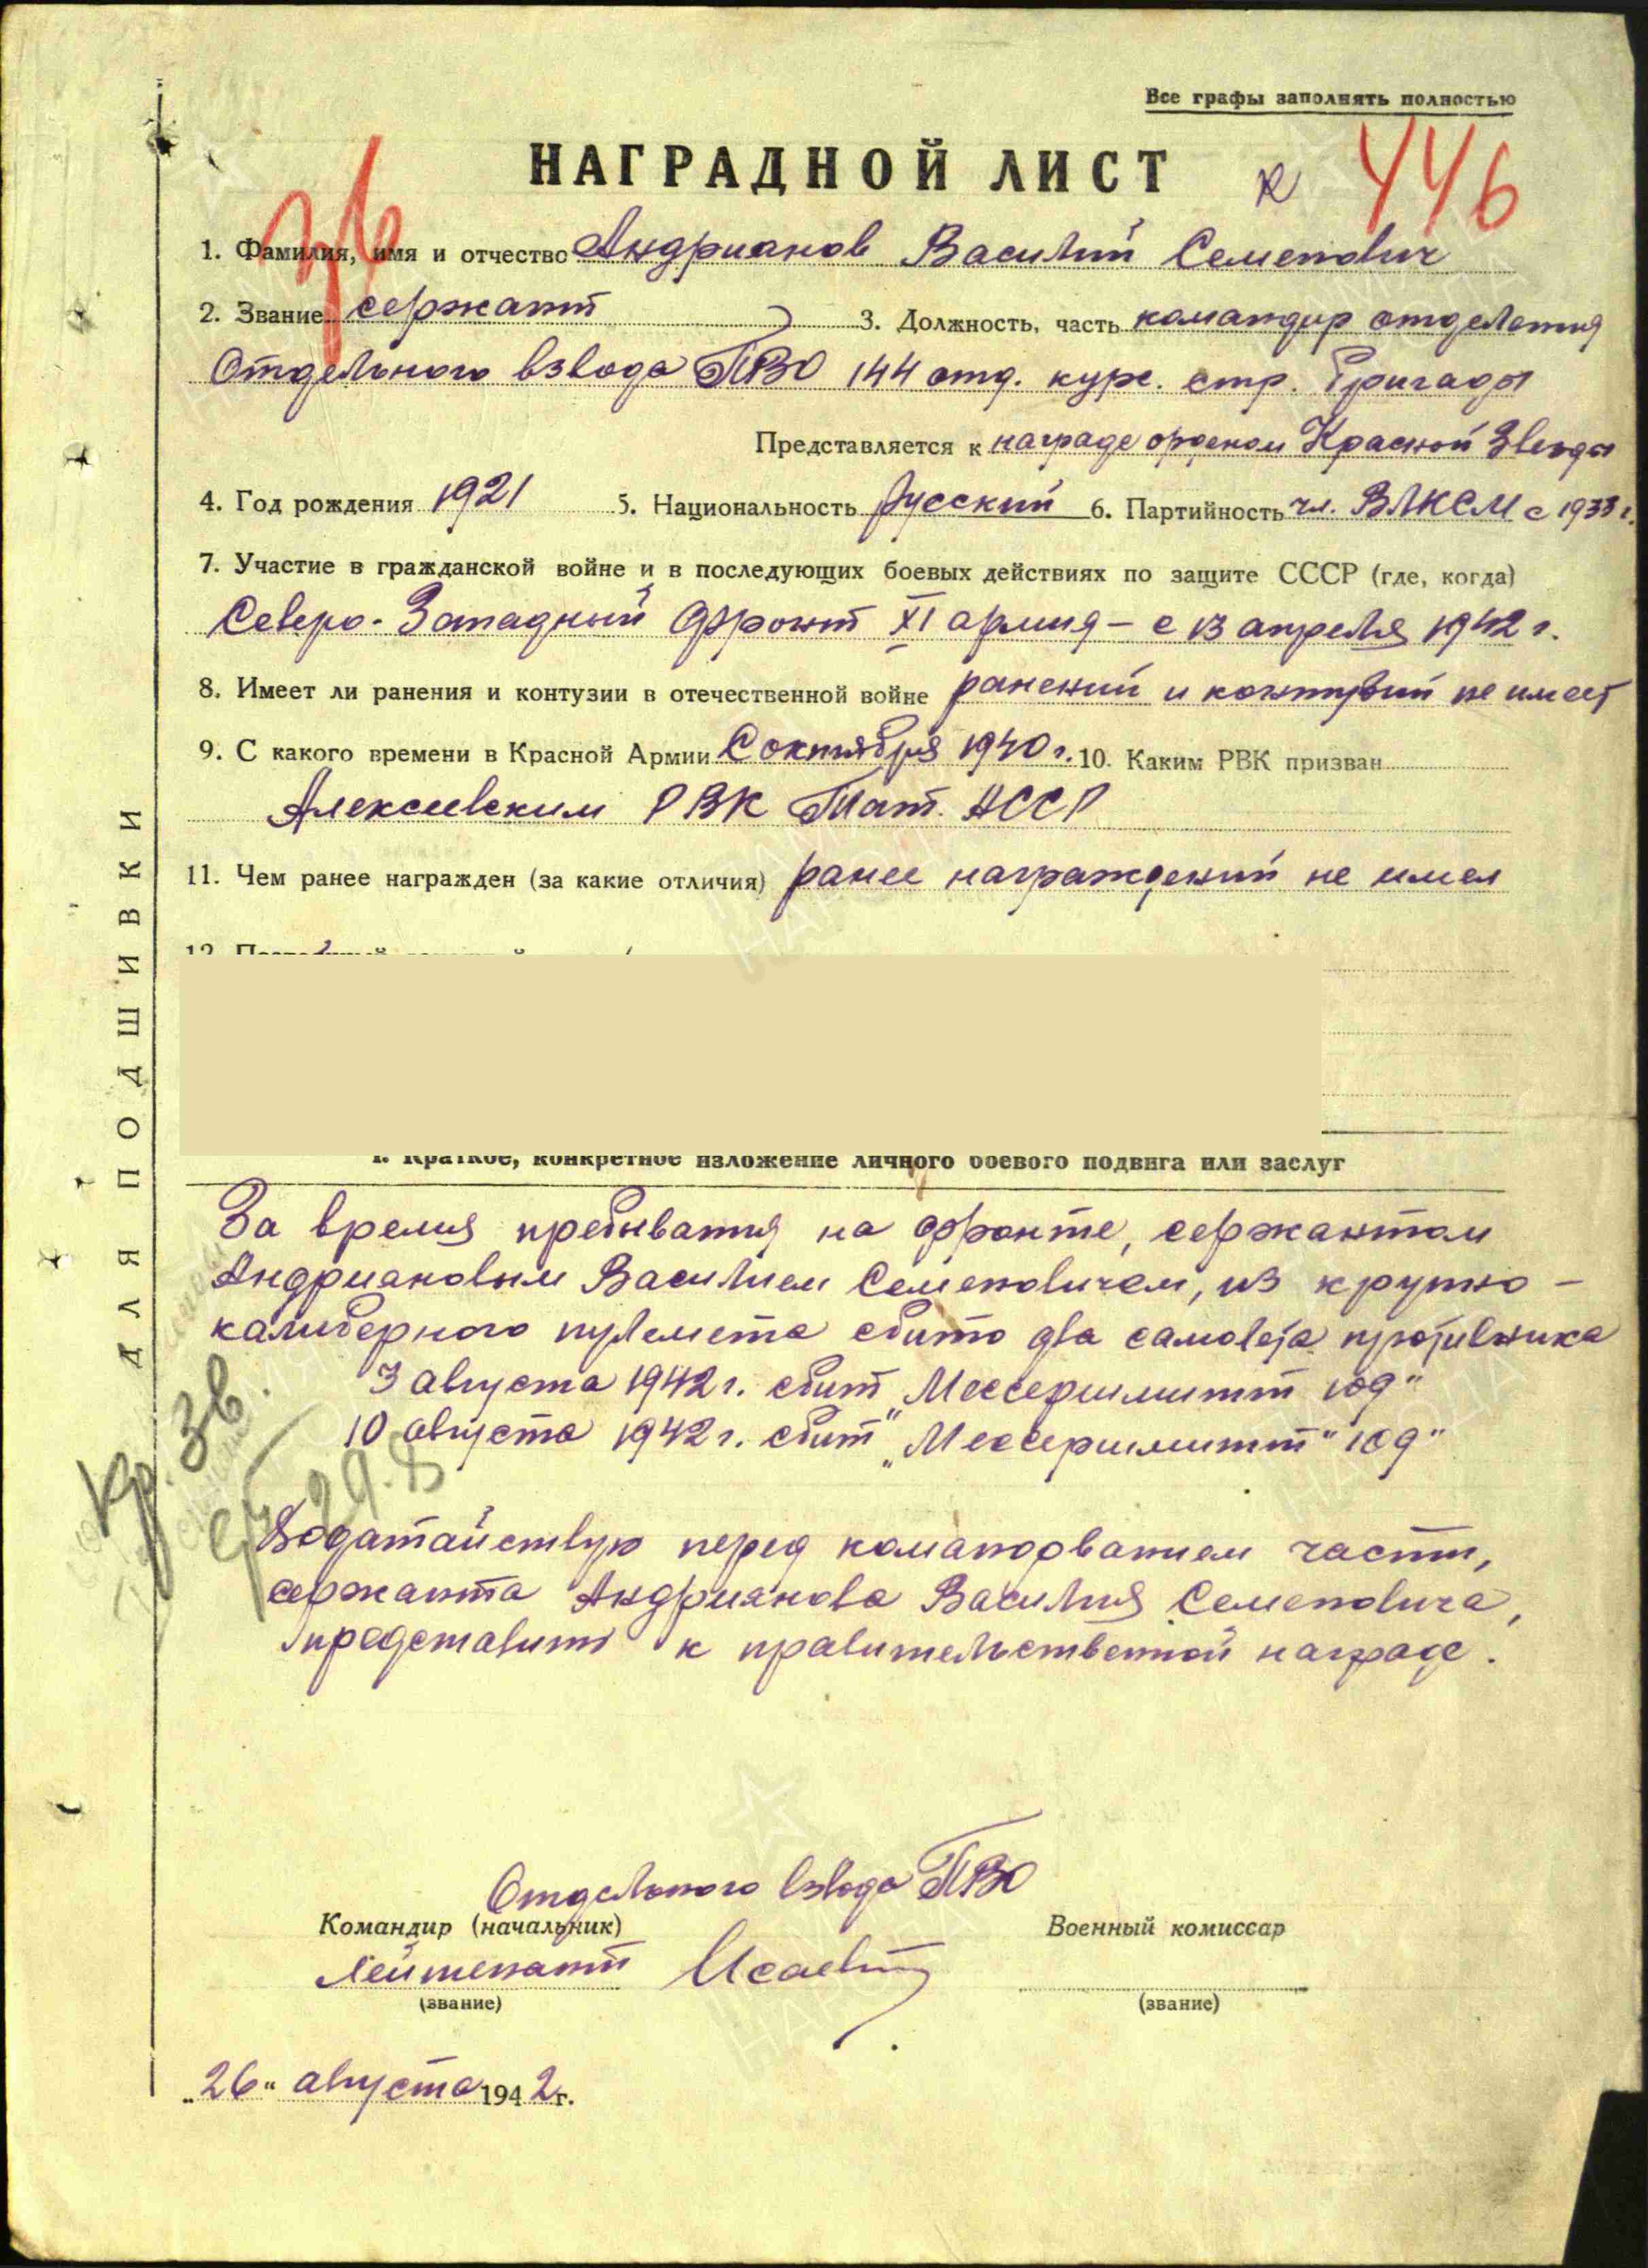 Все графы заполнять полностью
НАГРАДНОЙ ЛИСТ
к 446
36
1. Фамилия, имя и отчество Андрианов Василий Семенович
2. Звание сержант 3. Должность, часть командир отделения
Отдельного взвода ПВО 144 отд. курс. стр. бригады
Представляется к награде орденом Красной Звезды
4. Год рождения 1921 5. Национальность русский 6. Партийность чл. ВЛКСМ с 1938 г.
7. Участие в гражданской войне и в последующих боевых действиях по защите СССР (где, когда)
Северо-Западный фронт XI армия – с 13 апреля 1942 г.
8. Имеет ли ранения и контузии в отечественной войне ранений и контузий не имеет
9. С какого времени в Красной Армии С октября 1940 г. 10. Каким РВК призван
Алексеевским РВК Тат. АССР
11. Чем ранее награжден (за какие отличия) ранее награждений не имел
I. Краткое, конкретное изложение личного боевого подвига или заслуг
За время пребывания на фронте, сержантом
Андриановым Василием Семеновичем, из крупно-
калиберного пулемета сбито два самолета противника
3 августа 1942 г. сбит „Мессершмитт 109"
10 августа 1942 г. сбит „Мессершмитт" 109"
Кр. Зв.
29.8
Ходатайствую перед командованием части,
сержанта Андрианова Василия Семеновича,
представить к правительственной награде.
Отдельного взвода ПВО
Командир (начальник) Военный комиссар
Лейтенант
(звание) (звание)
„26" августа 1942 г.
ДЛЯ ПОДШИВКИ